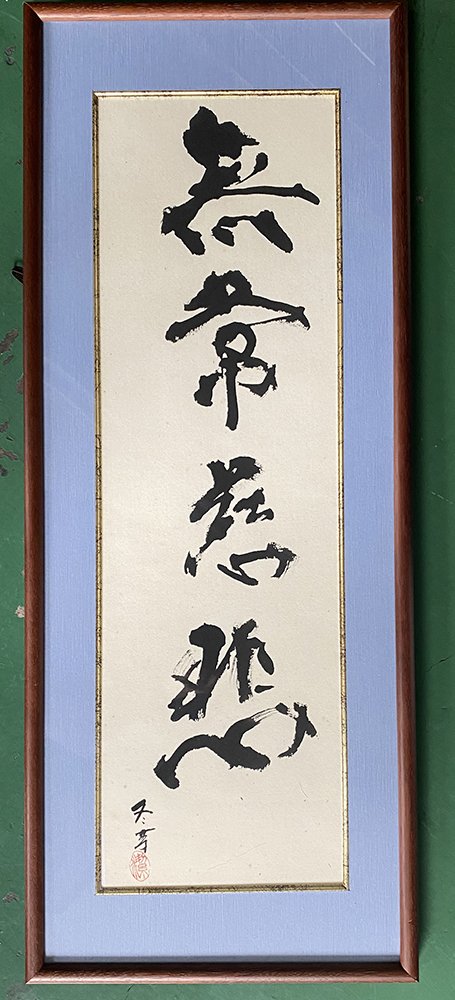 無常慈悲